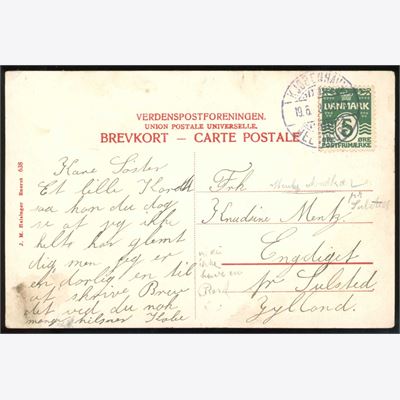 KJØBENHAVN
19.6.
DANMARK
5
ØRE
POSTFRIMÆRKE
VERDENSPOSTFORENINGEN.
UNION POSTALE UNIVERSELLE.
BREVKORT – CARTE POSTALE
J. M. Eneret 638
Kære Søster
Et lille Kort
saa kan du dog
se at jeg ikke
helts har glemt
dig men jeg er
en dorlig en til
at skrive Brev
det ved du nok
mange hilsner
Frk
Knudsine Mentz
Engdiget
pr Sulsted
Jylland.